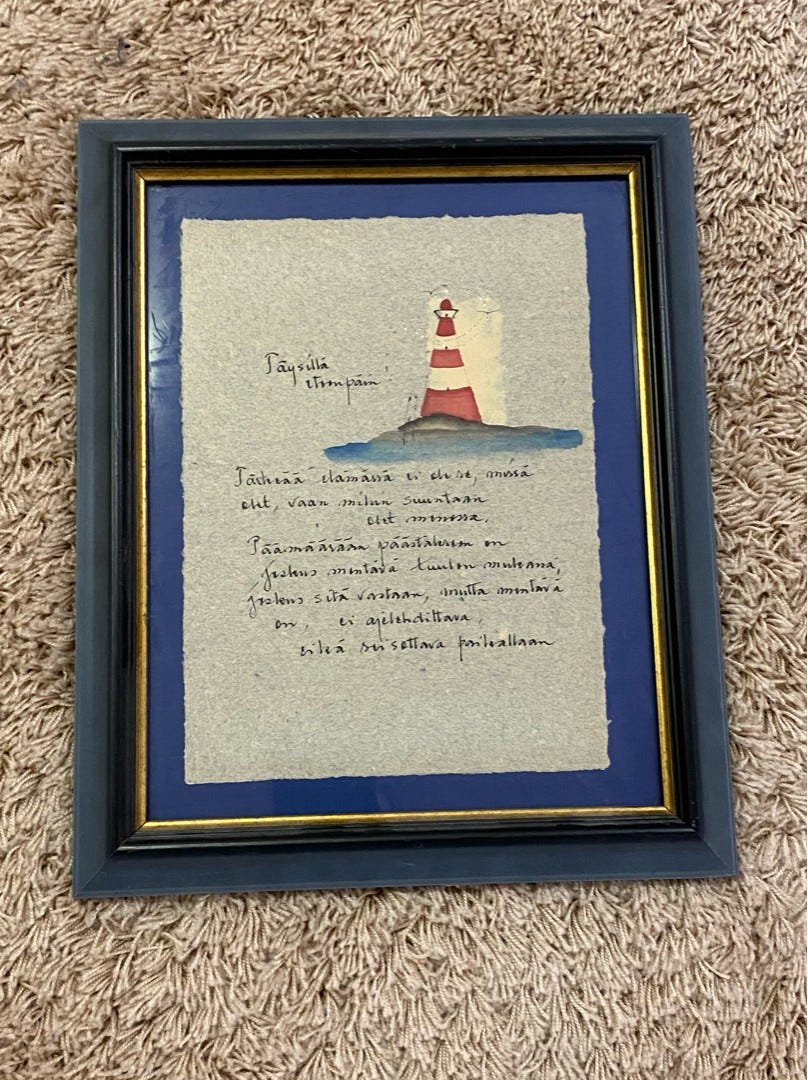 Täysillä
eteenpäin!
Tärkeää elämässä ei ole se, missä
olet, vaan mihin suuntaan
olet menossa.
Päämäärään päästäksesi on
joskus mentävä tuulen mukana,
joskus sitä vastaan, mutta mentävä
on, ei ajelehdittava,
eikä seisottava paikallaan